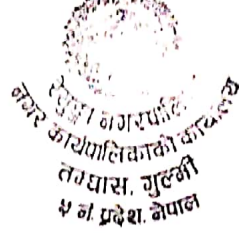 रेसुङ्गा नगरपालि
नगर कार्यपालिकाको कार्यालय
तम्घास, गुल्मी
५ नं. प्रदेश, नेपाल